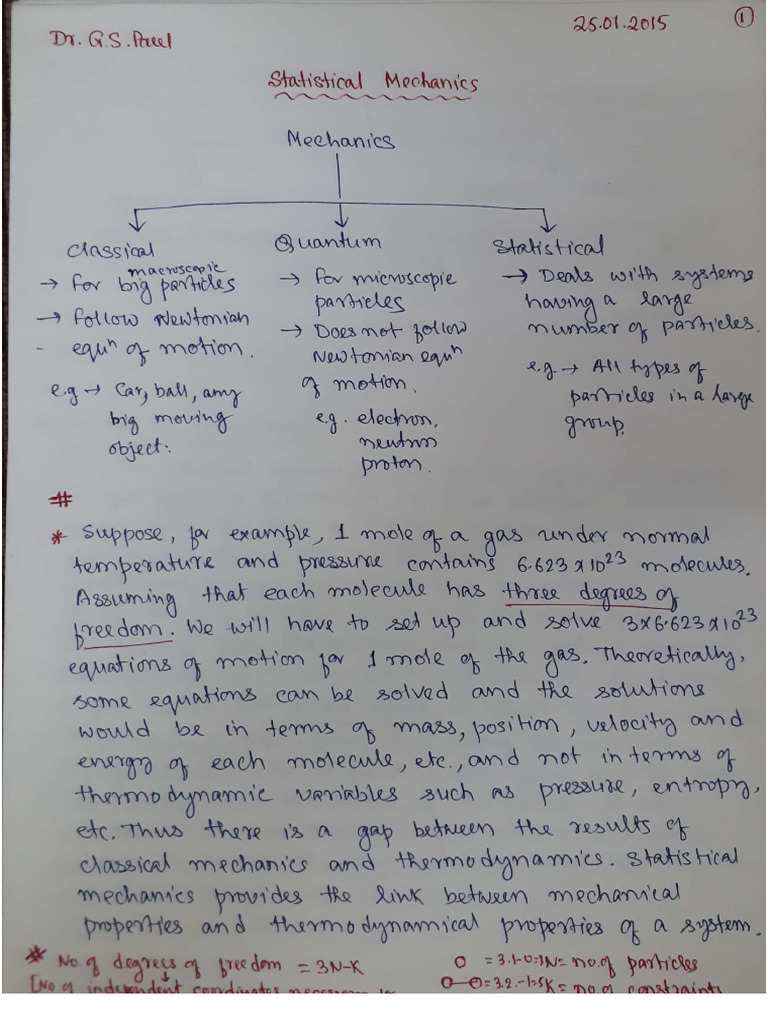 25.01.2015
1
Dr. G.S. Paul
Statistical Mechanics
Mechanics
Classical
→ for big particles
macroscopic
→ follow Newtonian
- equⁿ of motion.
e.g → Car, ball, any
big moving
object.
Quantum
→ for microscopic
particles
→ Does not follow
Newtonian equⁿ
of motion.
e.g. electron,
neutron
proton.
Statistical
→ Deals with systems
having a large
number of particles.
e.g. → All types of
particles in a large
group.
#
* Suppose, for example, 1 mole of a gas under normal
temperature and pressure contains 6.623 x 10²³ molecules.
Assuming that each molecule has three degrees of
freedom. We will have to set up and solve 3x6.623x10²³
equations of motion for 1 mole of the gas. Theoretically,
some equations can be solved and the solutions
would be in terms of mass, position, velocity and
energy of each molecule, etc., and not in terms of
thermodynamic variables such as pressure, entropy,
etc. Thus there is a gap between the results of
classical mechanics and thermodynamics. Statistical
mechanics provides the link between mechanical
properties and thermodynamical properties of a system.
* No. of degrees of freedom = 3N-K
O = 3.1-0=3 N= no. of particles
[No of independent coordinates necessary
O-O = 3.2-1=5 K= no. of constraints